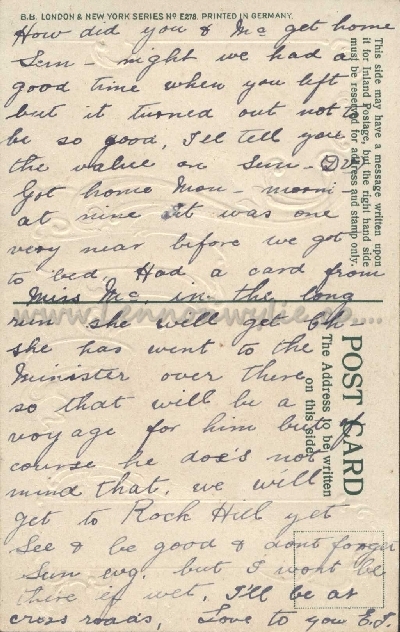 B.B. LONDON & NEW YORK SERIES No E278. PRINTED IN GERMANY.
How did you & Mc get home
Sun- night we had a
good time when you left
but it turned out not to
be so good, I'll tell you
the value on Sun-
Got home Mon- morni-
at nine It was one
very near before we got
to bed. Had a card from
Miss Mc. in the long
run she will get Ch-
she has went to the
Minister over there
so that will be a
voyage for him but of
course he does not
mind that, we will
get to Rock Hill yet
See & be good & dont forget
Sun evg. but I wont be
there if wet, I'll be at
cross roads, Love to you E.J.
This side may have a message written upon
it for Inland Postage, but the right hand side
must be reserved for address and stamp only.
POST CARD
The Address to be written
on this side